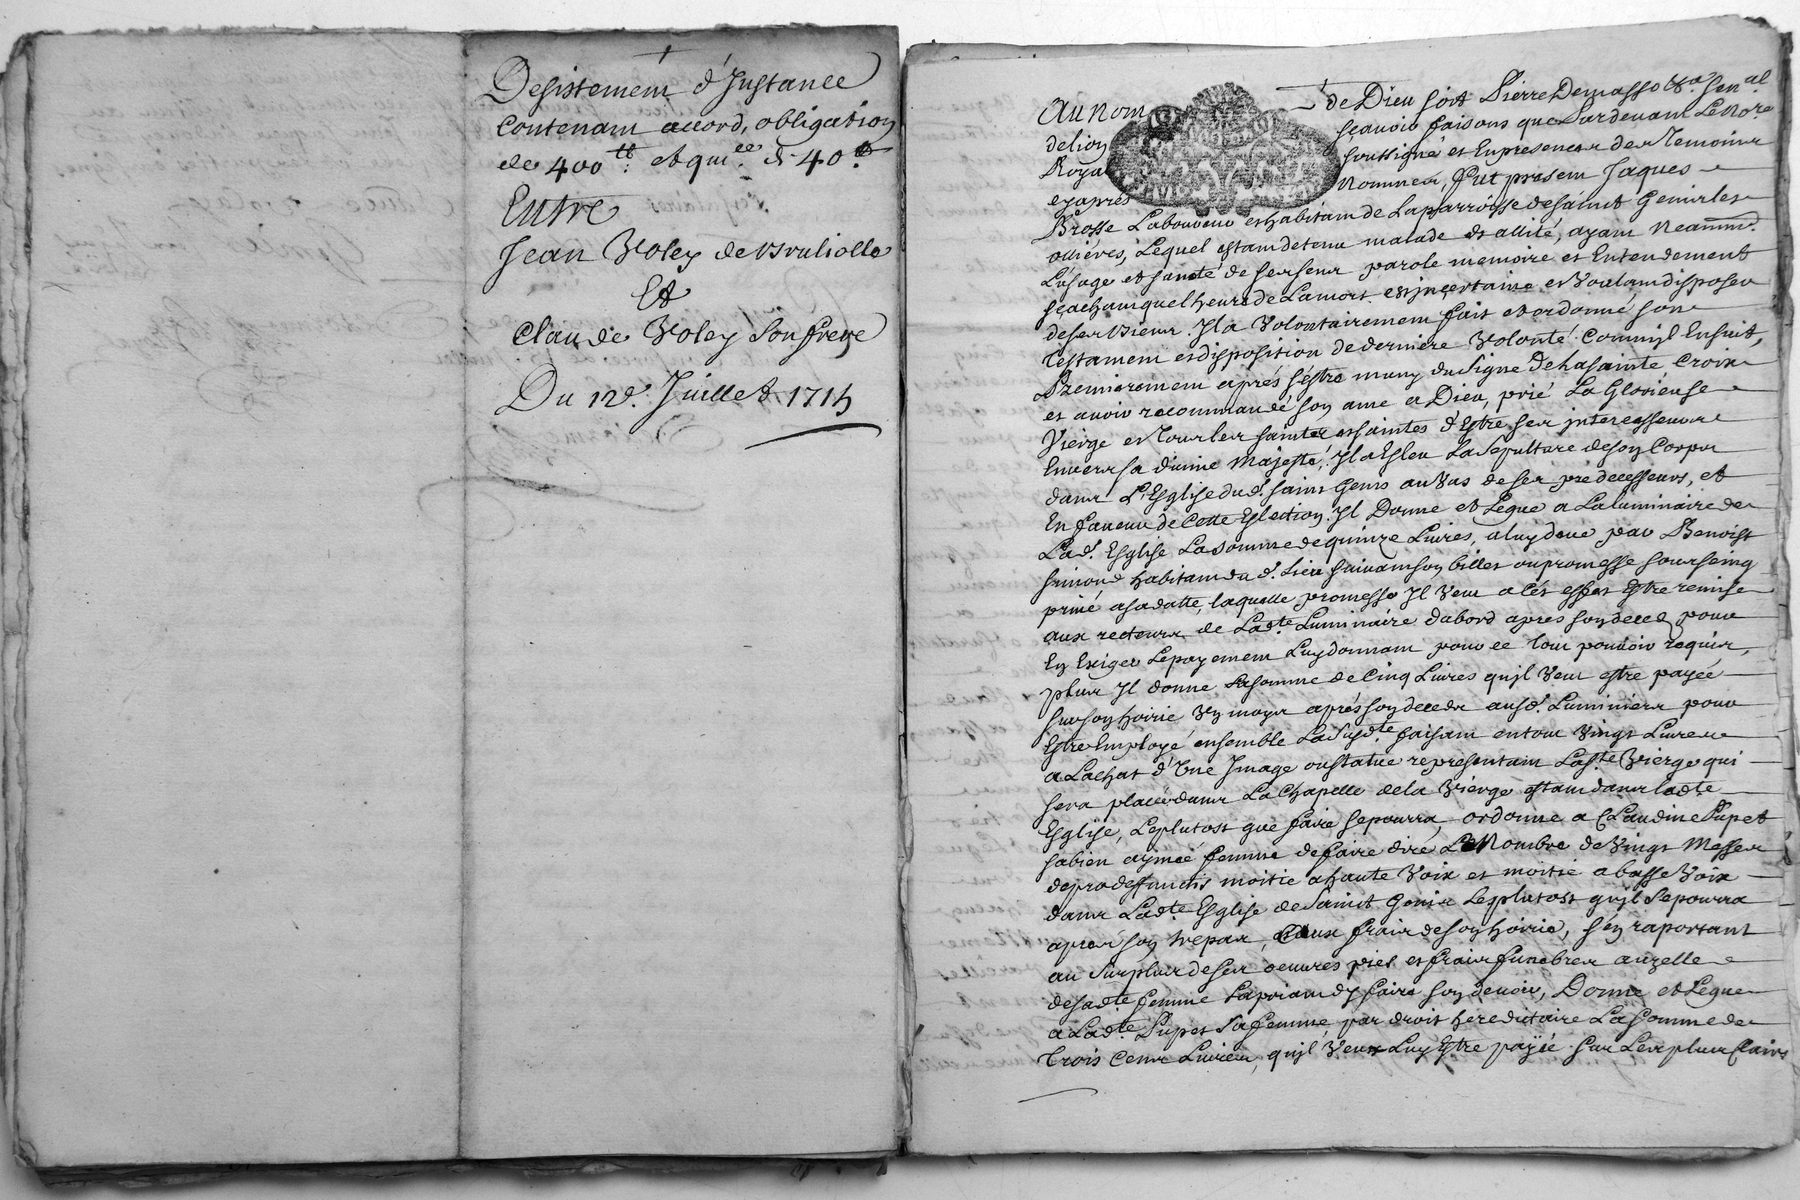 Desistement d'Instance
contenant accord, obligation
de 400tt. et quitce. de 40tt
Entre
Jean Voley de Bruliolle
Et
Claude Voley Son frere
Du 12e. Juillet 1715
Au Nom de Dieu soit Pierre Demasso
de lion sçavoir faisons que Pardevant Le No.re
Royal soussigné et En presence des Temoins
cy apres Nommes, fut present Jaques
Brosse Laboureur et habitant de La parroisse de sainct Genis les
ollieres, Lequel estant detenu malade et allité, ayant Neantm.
L'usage et santé de ses sens parole memoire et Entendement
sçachant quel heure de La mort est incertaine et Voulant disposer
de ses biens. Il a Volontairement fait et ordonné son
Testament et disposition de derniere Volonté. Comm'jl Ensuit,
Premierement aprés s'éstre muny du Signe De La sainte Croix
et avoir recommandé son ame a Dieu, prié La Glorieuse
Vierge et Tous les saints et saintes d'Estre ses intercesseurs
Envers sa divine Majesté, Il a Esleu La Sepulture de son Corps
dans L'Esglise dud. saint Genis au Vas de ses prédecesseurs, et
En faveur de Cette Eslection. Il Donne et Legue a La luminaire de
Lad. Esglise La somme de quinze Livres, a luy deue par Benoist
Simond habitant du d. Lieu suivant son billet ou promesse sous seing
privé a sa datte, laquelle promesse Il Veut a cét effet Estre remise
aux recteurs de Lad.te Luminaire dabord apres son deced pour
En Exiger Le payement Luy donnant pour ce Tout pouvoir requis,
plus Il donne La somme de Cinq Livres qu'jl Veut estre payée
sur son hoirie Un moys aprés son decedz ausd. Luminiers pour
Estre Employé ensemble La Susd.te faisant en tout Vingt Livres
a L'achat d'Une Image ou statue representant La S.te Vierge qui
sera placée dans La Chapelle de la Vierge estant dans lad.te
Esglise, Le plutost que faire se pourra, ordonne a Claudine Pupet
sa bien aymée femme de faire dire Le Nombre de Vingt Messes
de pro defunctis moitie a haute Voix et moitie a basse Voix
dans Lad.te Esglise de Sainct Genis Le plutost qu'jl se pourra
apres son trepas, aux frais de son hoirie, s'en raportant
au Surplus de ses oeuvres pies et frais funebres au zelle
de sad.te femme La priant d'y faire son devoir, Donne et Legue
a Lad.te Pupet Sa femme par droit héreditaire La somme de
Trois Cens Livres, qu'jl Veux Luy Estre payée sur Les plus Clairs